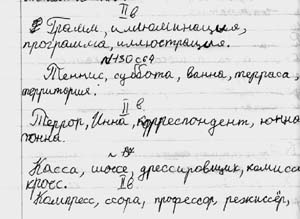 II в
Грамм, иллюминация,
программа, иллюстрация.
№130 с64
IV
Теннис, суббота, ванна, терраса,
территория.
II в
Террор, Инна, корреспондент, юнна
тонна.
Касса, шоссе, дрессировщик, комисс
кросс.
II в.
Компресс, ссора, профессор, режиссёр,